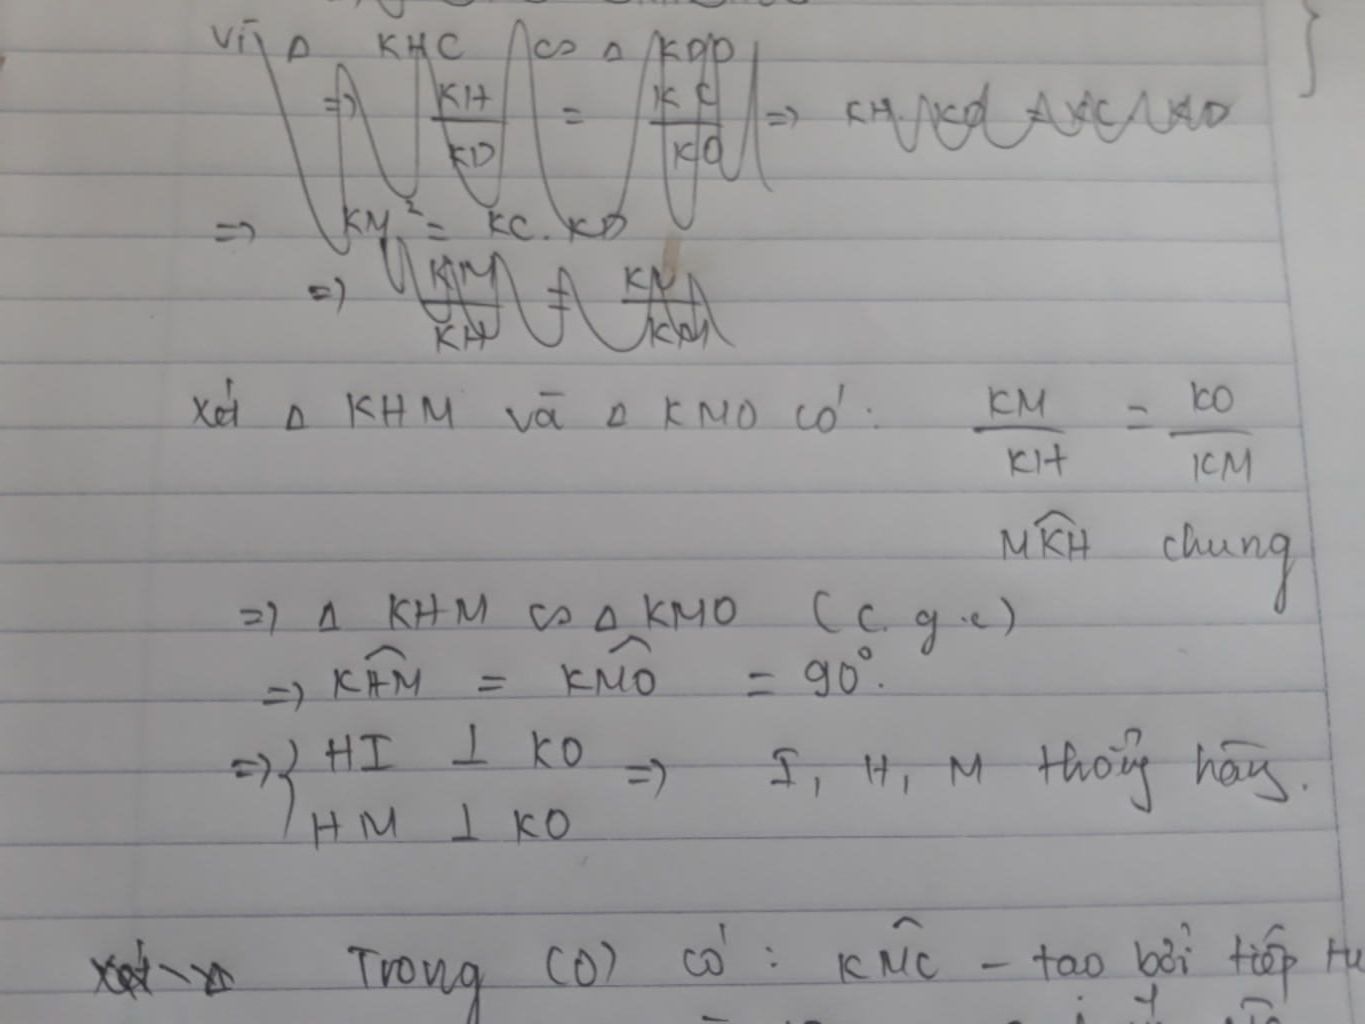 Vì Δ KHC ∽ Δ KOD
=> KH/KD = KC/KO => KH.KO = KC.KD
=> KM² = KC.KD
=> KM/KH =
Xét Δ KHM và Δ KMO có: KM/KH = KO/KM
MKH chung
=> Δ KHM ∽ Δ KMO (c.g.c)
=> KHM = KMO = 90°.
=> { HI ⊥ KO => I, H, M thẳng hàng.
HM ⊥ KO
Xét Δ Trong (O) có: KMC - tạo bởi tiếp